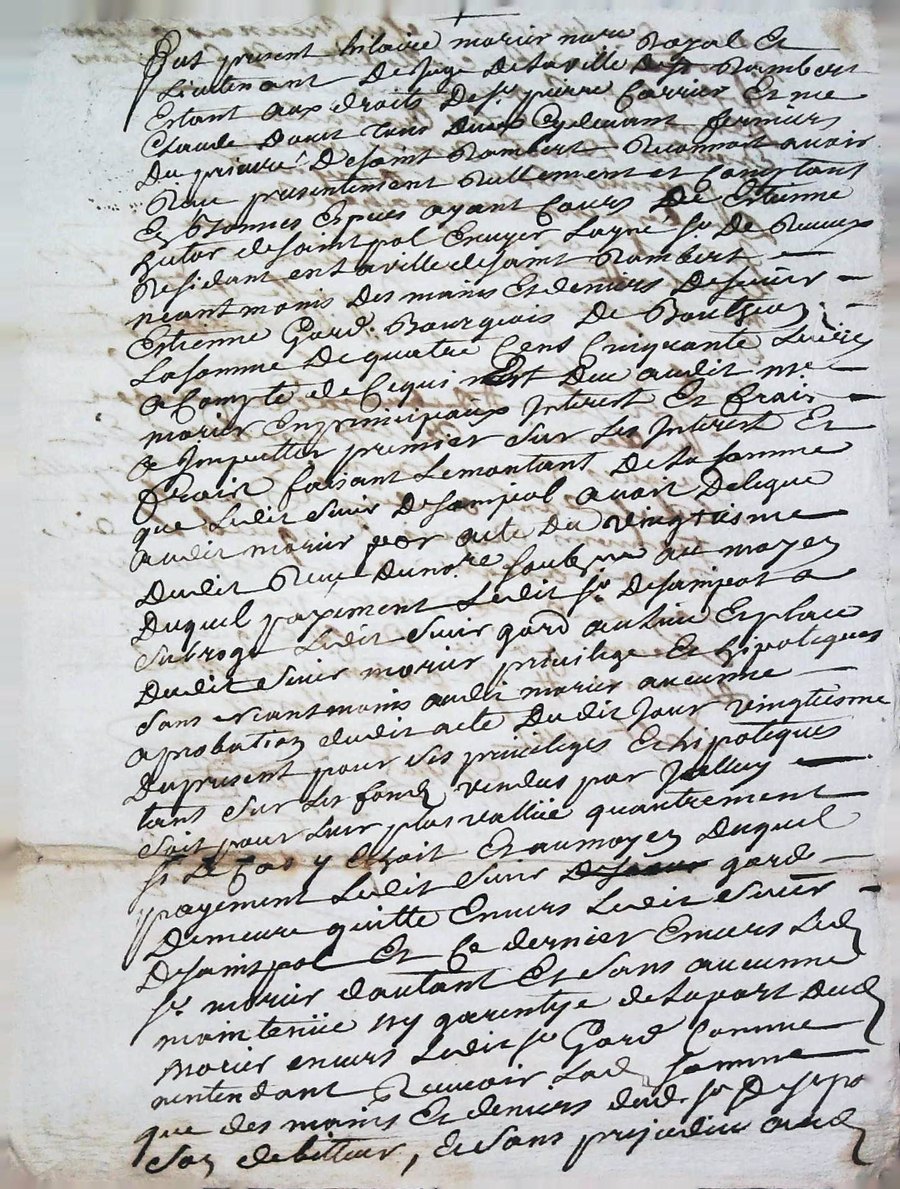 fut present hilaire morier nore Royal Et
Lieutenant De Juge De la ville de St Rambert
Estant aux droits De Sr pierre Carrier Et me
Claude cy devant fermiers
Du prieuré De saint Rambert Reconnoit avoir
Receu presentement Rellement et Comptant
En bonnes Espices ayant Cours De Estienne
de saint pol Ecuyer Sr De
Residant en la ville de saint Rambert
neantmoins Des mains Et deniers De sieur
Estienne Gard. Bourgeois De
La somme De quatre Cens Cinquante Livres
a Compte de Ce qui Est Due audit me
morier En principaux Interest Et frais
a Imputter premier sur Les Interest Et
frais faisant Le montant De la somme
que Ledit sieur De saintpol avoit Delegue
audit morier par acte Du vingtiesme
Dudit Receu Du nore soubsne au moyen
Duquel payement Ledit Sr De saintpol a
subrogé Ledit sieur gard au lieu Et place
Dudit sieur morier privilege Et hipoteques
sans neantmoins audit morier aucunne
aprobation dudit acte Dudit Jour vingtiesme
Du present pour ses privileges Et hipoteques
tant sur Les fonds vendus par
soit pour Leur plus vallüe quautrement
sy Le Cas y Echoit Et au moyen Duquel
payement Ledit sieur gard
Demeure quitte Envers Ledit sieur
De saintpol Et Ce dernier Envers Led
Sr morier dautant Et sans aucunne
maintenüe ny garentye de la part Dud
Morier envers Ledit Sr Gard Comme
nentendant Recevoir Lad somme
que des mains Et deniers dud Sr De stpo
son debitteur, Et sans prejudice aud